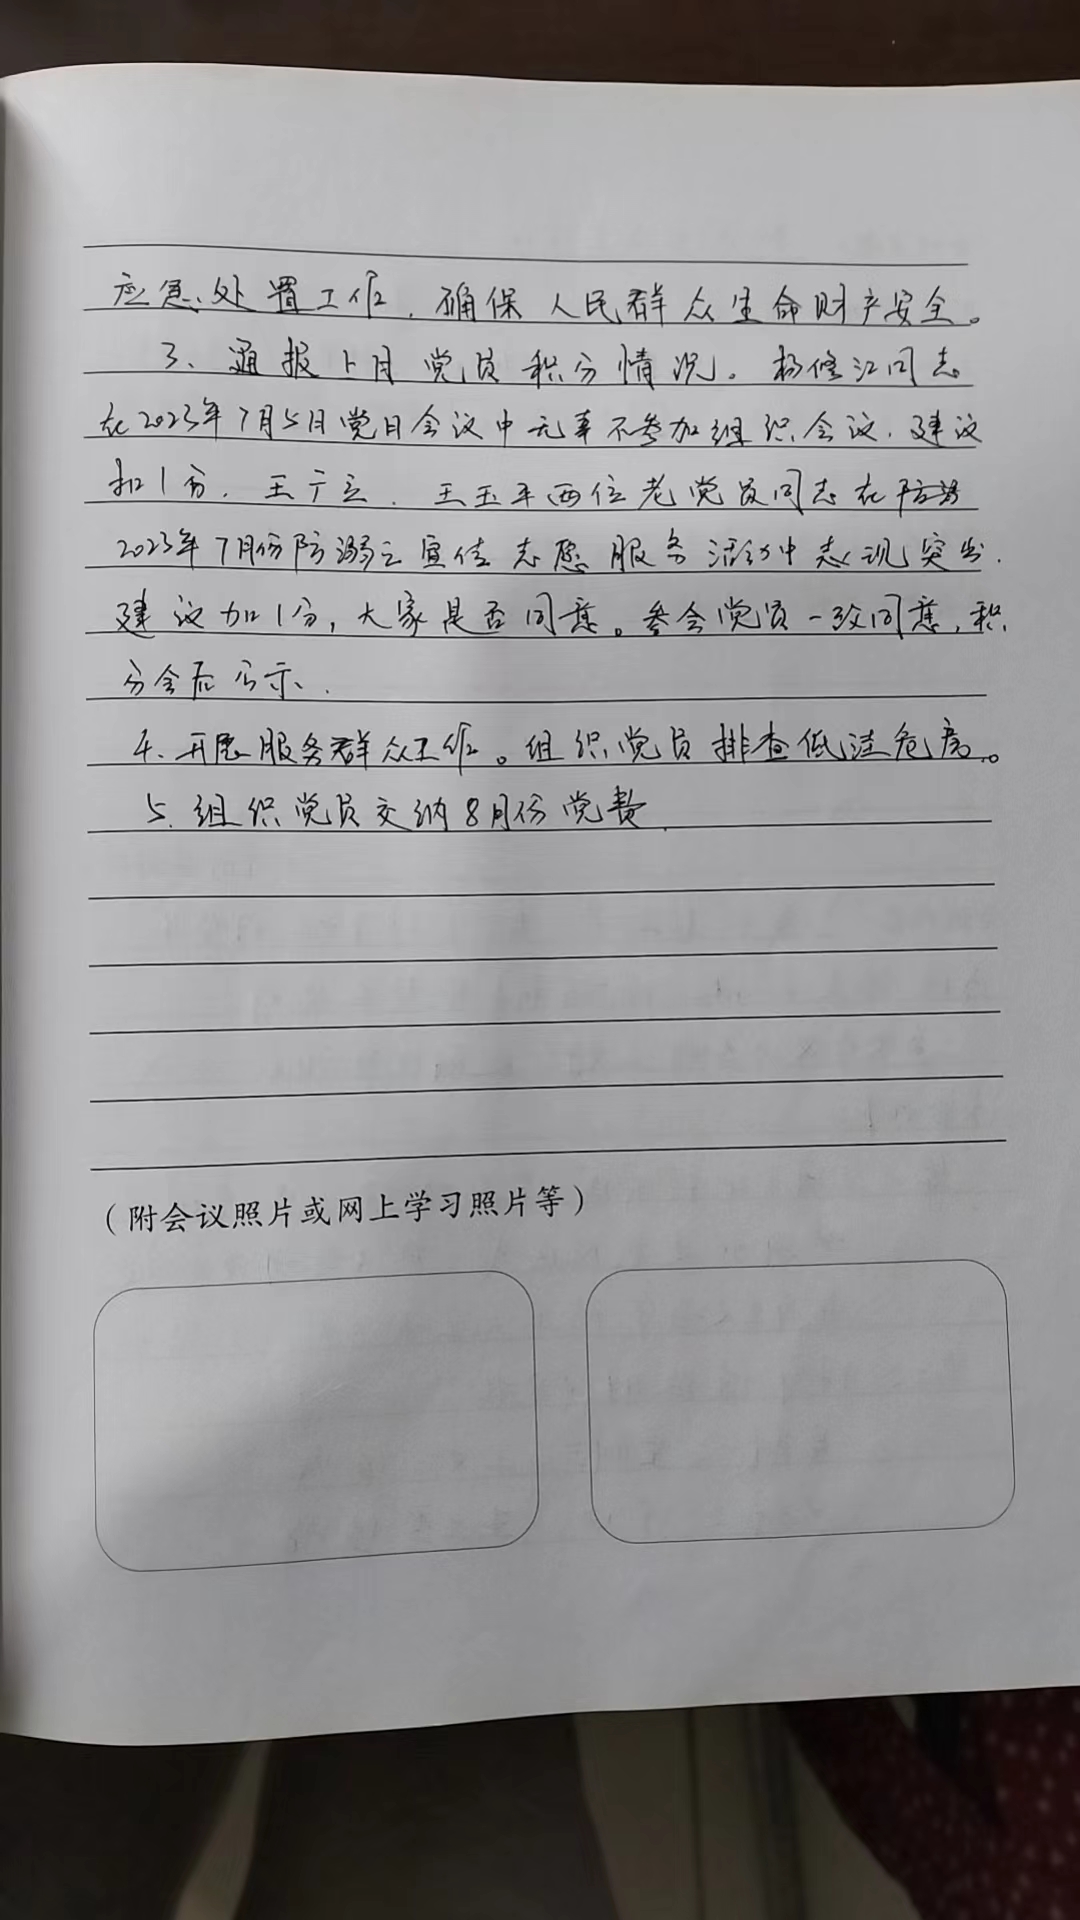 应急处置工作，确保人民群众生命财产安全。
3、通报上月党员积分情况。杨修江同志
在2023年7月5日党日会议中无事不参加组织会议，建议
扣1分，王广立、王玉平两位老党员同志在防溺
2023年7月份防溺亡宣传志愿服务活动中表现突出，
建议加1分，大家是否同意。参会党员一致同意，积
分会后公示、
4、开展服务群众工作。组织党员排查低洼危房。
5、组织党员交纳8月份党费
（附会议照片或网上学习照片等）